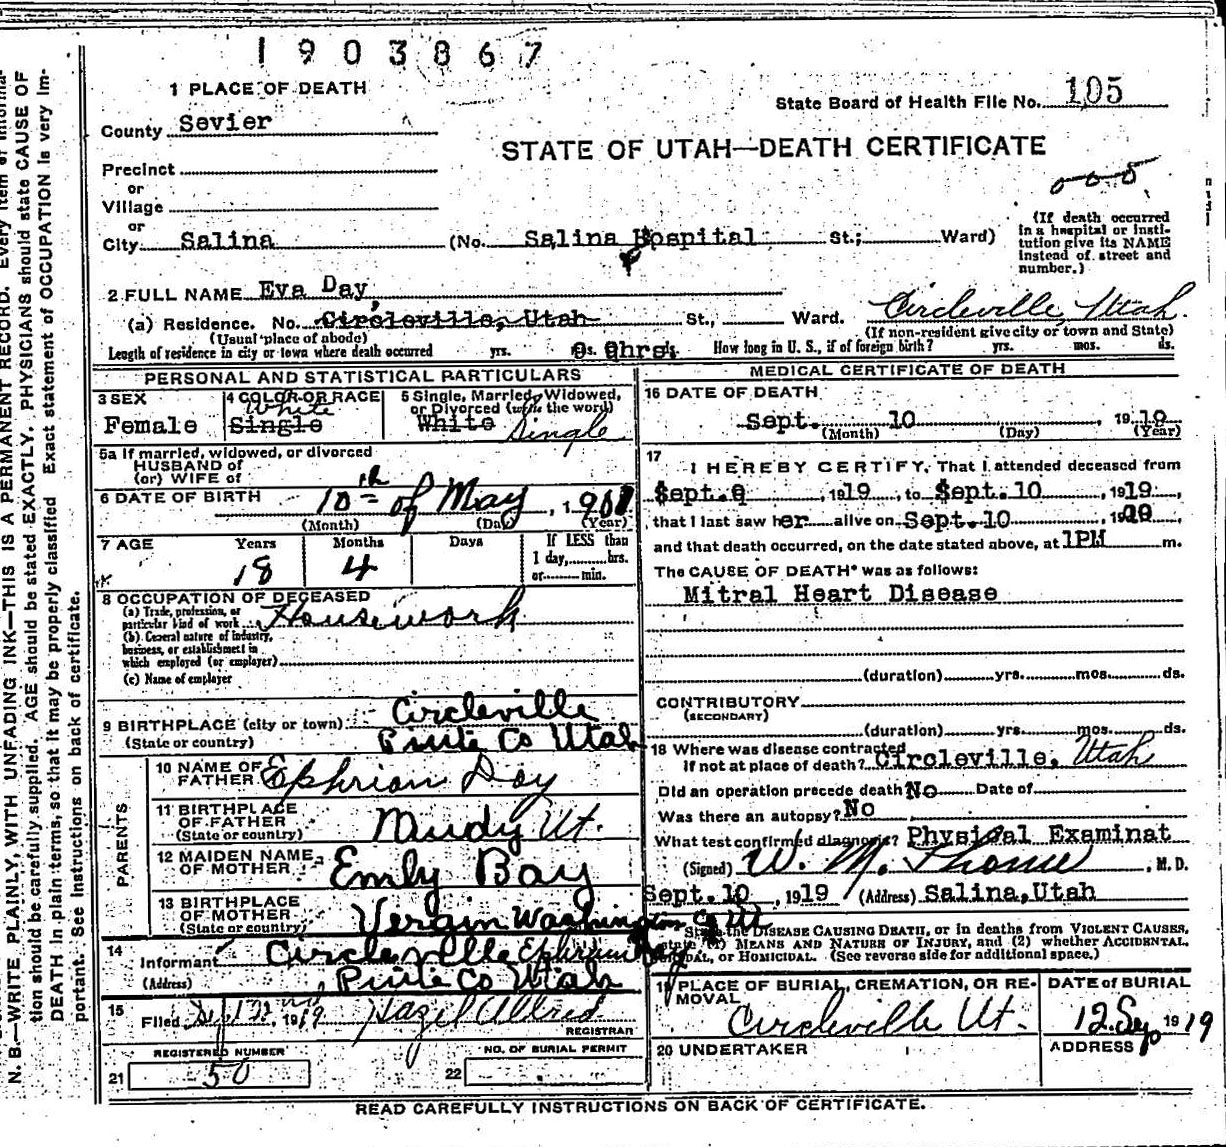 1903867
1 PLACE OF DEATH
State Board of Health File No. 105
County Sevier
STATE OF UTAH—DEATH CERTIFICATE
Precinct
or
Village
or
City Salina (No. Salina Hospital St.; Ward)
(If death occurred
in a hospital or insti-
tution give its NAME
instead of street and
number.)
2 FULL NAME Eva Day,
(a) Residence. No. Circleville, Utah St., Ward. Circleville, Utah.
(Usual place of abode) (If non-resident give city or town and State)
Length of residence in city or town where death occurred yrs. ds. How long in U. S., if of foreign birth? yrs. mos. ds.
PERSONAL AND STATISTICAL PARTICULARS
3 SEX
Female
4 COLOR OR RACE
White
Single
5 Single, Married, Widowed,
or Divorced (write the word)
White Single
5a If married, widowed, or divorced
HUSBAND of
(or) WIFE of
6 DATE OF BIRTH 10th of May, 1901
(Month) (Day) (Year)
7 AGE Years Months Days If LESS than
1 day, hrs.
or min.
18 4
8 OCCUPATION OF DECEASED
(a) Trade, profession, or
particular kind of work Housework
(b) General nature of industry,
business, or establishment in
which employed (or employer)
(c) Name of employer
9 BIRTHPLACE (city or town) Circleville
(State or country) Piute Co Utah
PARENTS
10 NAME OF
FATHER Ephrian Day
11 BIRTHPLACE
OF FATHER
(State or country) Mudy Ut.
12 MAIDEN NAME
OF MOTHER Emly Bay
13 BIRTHPLACE
OF MOTHER
(State or country) Vergin Washington Co Ut
14 Informant Circleville Ephriam Day
(Address) Piute Co Utah
15 Filed Sept 22nd, 1919 Hazel Allred
REGISTRAR
REGISTERED NUMBER
21 50
NO. OF BURIAL PERMIT
22
MEDICAL CERTIFICATE OF DEATH
16 DATE OF DEATH
Sept. 10 1919
(Month) (Day) (Year)
17 I HEREBY CERTIFY, That I attended deceased from
Sept. 9, 1919, to Sept. 10, 1919,
that I last saw her alive on Sept. 10, 1919,
and that death occurred, on the date stated above, at 1PM m.
The CAUSE OF DEATH* was as follows:
Mitral Heart Disease
(duration) yrs. mos. ds.
CONTRIBUTORY
(SECONDARY)
(duration) yrs. mos. ds.
18 Where was disease contracted
If not at place of death? Circleville, Utah
Did an operation precede death No Date of
Was there an autopsy? No
What test confirmed diagnosis? Physical Examinat
(Signed) W. M. , M. D.
Sept. 10, 1919 (Address) Salina, Utah
State the DISEASE CAUSING DEATH, or in deaths from VIOLENT CAUSES,
state (1) MEANS AND NATURE OF INJURY, and (2) whether ACCIDENTAL,
SUICIDAL, OR HOMICIDAL. (See reverse side for additional space.)
19 PLACE OF BURIAL, CREMATION, OR RE-
MOVAL
Circleville Ut.
DATE of BURIAL
12. Sep 1919
20 UNDERTAKER
ADDRESS
READ CAREFULLY INSTRUCTIONS ON BACK OF CERTIFICATE.
N. B.—WRITE PLAINLY, WITH UNFADING INK—THIS IS A PERMANENT RECORD. Every item of informa-
tion should be carefully supplied. AGE should be stated EXACTLY. PHYSICIANS should state CAUSE OF
DEATH in plain terms, so that it may be properly classified. Exact statement of OCCUPATION is very im-
portant. See instructions on back of certificate.